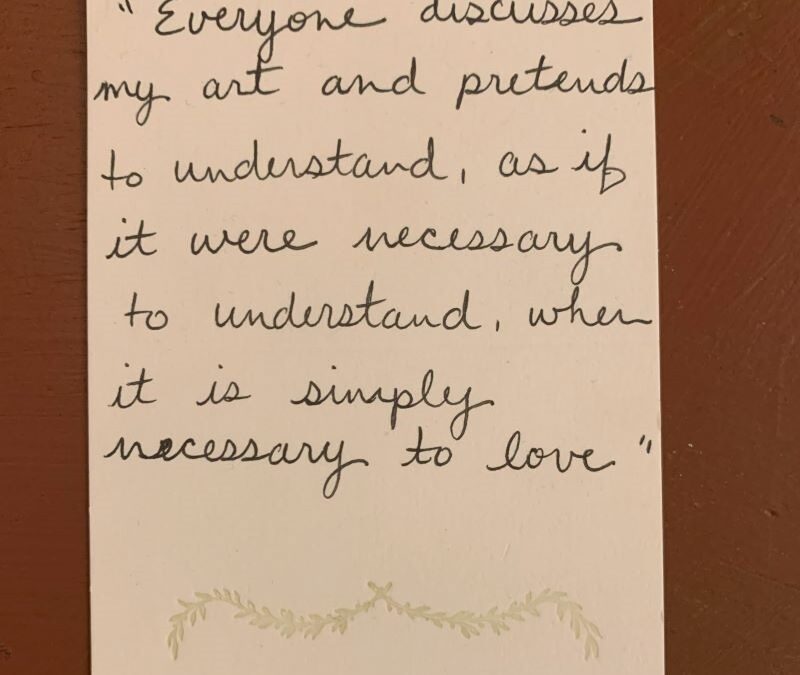 "Everyone discusses
my art and pretends
to understand, as if
it were necessary
to understand, when
it is simply
necessary to love"